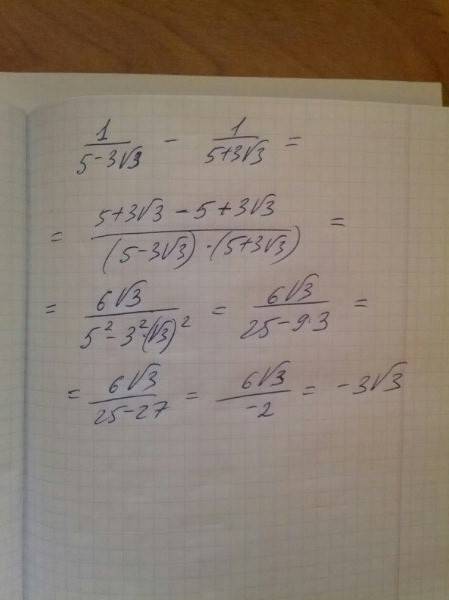 1/(5-3√3) - 1/(5+3√3) =
= (5+3√3 - 5+3√3)/((5-3√3)·(5+3√3)) =
= 6√3/(5²-3²·(√3)²) = 6√3/(25-9·3) =
= 6√3/(25-27) = 6√3/(-2) = -3√3